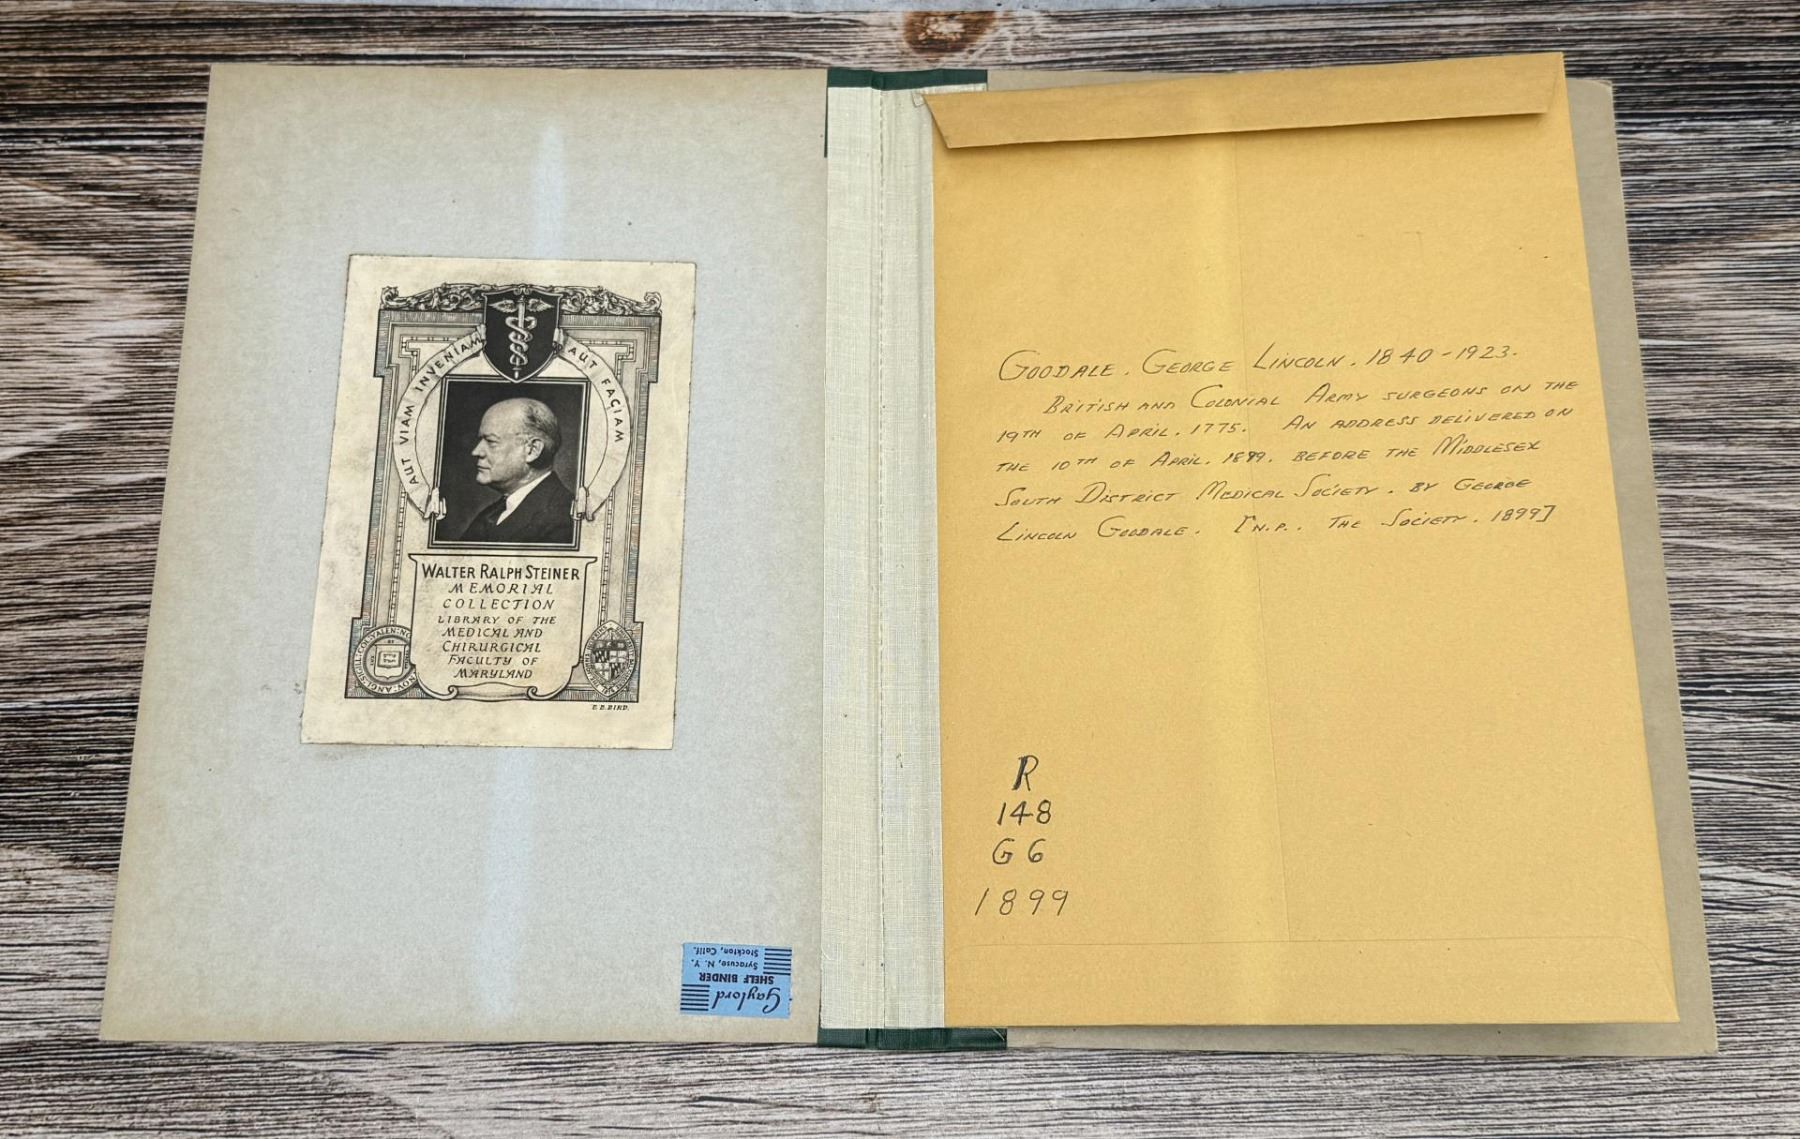 AUT VIAM INVENIAM AUT FACIAM
WALTER RALPH STEINER
MEMORIAL
COLLECTION
LIBRARY OF THE
MEDICAL AND
CHIRURGICAL
FACULTY OF
MARYLAND
E.B.BIRD.
Gaylord
SHELF BINDER
Syracuse, N. Y.
Stockton, Calif.
GOODALE. GEORGE LINCOLN. 1840-1923.
BRITISH AND COLONIAL ARMY SURGEONS ON THE
19TH OF APRIL. 1775. AN ADDRESS DELIVERED ON
THE 10TH OF APRIL. 1899. BEFORE THE MIDDLESEX
SOUTH DISTRICT MEDICAL SOCIETY. BY GEORGE
LINCOLN GOODALE. [N.P.. THE SOCIETY. 1899]
R
148
G6
1899